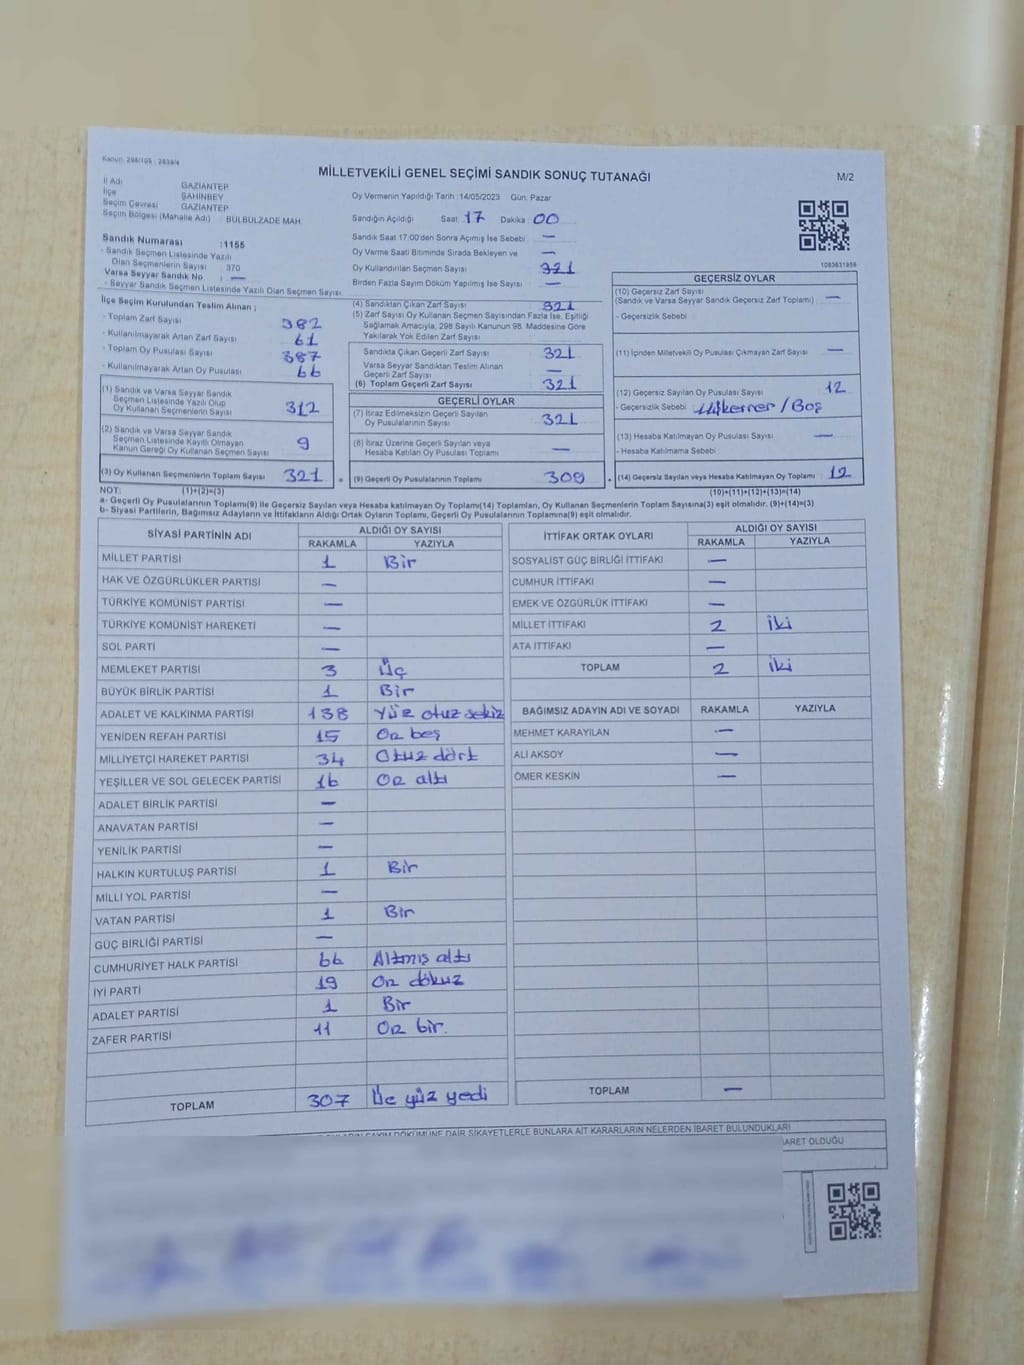 Kanun: 298/105 , 2839/4
MİLLETVEKİLİ GENEL SEÇİMİ SANDIK SONUÇ TUTANAĞI
M/2
İl Adı GAZİANTEP
İlçe ŞAHİNBEY
Seçim Çevresi GAZİANTEP
Seçim Bölgesi (Mahalle Adı) BÜLBÜLZADE MAH.
Sandık Numarası :1155
- Sandık Seçmen Listesinde Yazılı
Olan Seçmenlerin Sayısı 370
Varsa Seyyar Sandık No : —
- Seyyar Sandık Seçmen Listesinde Yazılı Olan Seçmen Sayısı
Oy Vermenin Yapıldığı Tarih :14/05/2023 Gün: Pazar
Sandığın Açıldığı Saat 17 Dakika : 00
Sandık Saat 17:00'den Sonra Açılmış İse Sebebi —
Oy Verme Saati Bitiminde Sırada Bekleyen ve —
Oy Kullandırılan Seçmen Sayısı 321
Birden Fazla Sayım Döküm Yapılmış İse Sayısı —
İlçe Seçim Kurulundan Teslim Alınan ;
- Toplam Zarf Sayısı 382
- Kullanılmayarak Artan Zarf Sayısı 61
- Toplam Oy Pusulası Sayısı 387
- Kullanılmayarak Artan Oy Pusulası 66
(1) Sandık ve Varsa Seyyar Sandık
Seçmen Listesinde Yazılı Olup
Oy Kullanan Seçmenlerin Sayısı 312
(2) Sandık ve Varsa Seyyar Sandık
Seçmen Listesinde Kayıtlı Olmayan
Kanun Gereği Oy Kullanan Seçmen Sayısı 9
(3) Oy Kullanan Seçmenlerin Toplam Sayısı 321 =
(4) Sandıktan Çıkan Zarf Sayısı 321
(5) Zarf Sayısı Oy Kullanan Seçmen Sayısından Fazla İse, Eşitliği
Sağlamak Amacıyla, 298 Sayılı Kanunun 98. Maddesine Göre
Yakılarak Yok Edilen Zarf Sayısı
Sandıkta Çıkan Geçerli Zarf Sayısı 321
Varsa Seyyar Sandıktan Teslim Alınan
Geçerli Zarf Sayısı —
(6) Toplam Geçerli Zarf Sayısı 321
GEÇERLİ OYLAR
(7) İtiraz Edilmeksizin Geçerli Sayılan
Oy Pusulalarının Sayısı 321
(8) İtiraz Üzerine Geçerli Sayılan veya
Hesaba Katılan Oy Pusulası Toplamı —
(9) Geçerli Oy Pusulalarının Toplamı 309 +
1083631956
GEÇERSİZ OYLAR
(10) Geçersiz Zarf Sayısı
(Sandık ve Varsa Seyyar Sandık Geçersiz Zarf Toplamı) —
- Geçersizlik Sebebi
(11) İçinden Milletvekili Oy Pusulası Çıkmayan Zarf Sayısı —
(12) Geçersiz Sayılan Oy Pusulası Sayısı 12
- Geçersizlik Sebebi / Boş
(13) Hesaba Katılmayan Oy Pusulası Sayısı —
- Hesaba Katılmama Sebebi
(14) Geçersiz Sayılan veya Hesaba Katılmayan Oy Toplamı 12
NOT: (1)+(2)=(3) (10)+(11)+(12)+(13)=(14)
a- Geçerli Oy Pusulalarının Toplamı(9) ile Geçersiz Sayılan veya Hesaba katılmayan Oy Toplamı(14) Toplamları, Oy Kullanan Seçmenlerin Toplam Sayısına(3) eşit olmalıdır. (9)+(14)=(3)
b- Siyasi Partilerin, Bağımsız Adayların ve İttifakların Aldığı Ortak Oyların Toplamı, Geçerli Oy Pusulalarının Toplamına(9) eşit olmalıdır.
SİYASİ PARTİNİN ADI ALDIĞI OY SAYISI
RAKAMLA YAZIYLA
MİLLET PARTİSİ 1 Bir
HAK VE ÖZGÜRLÜKLER PARTİSİ —
TÜRKİYE KOMÜNİST PARTİSİ —
TÜRKİYE KOMÜNİST HAREKETİ —
SOL PARTİ —
MEMLEKET PARTİSİ 3 Üç
BÜYÜK BİRLİK PARTİSİ 1 Bir
ADALET VE KALKINMA PARTİSİ 138 Yüz otuz sekiz
YENİDEN REFAH PARTİSİ 15 On beş
MİLLİYETÇİ HAREKET PARTİSİ 34 Otuz dört
YEŞİLLER VE SOL GELECEK PARTİSİ 16 On altı
ADALET BİRLİK PARTİSİ —
ANAVATAN PARTİSİ —
YENİLİK PARTİSİ —
HALKIN KURTULUŞ PARTİSİ 1 Bir
MİLLİ YOL PARTİSİ —
VATAN PARTİSİ 1 Bir
GÜÇ BİRLİĞİ PARTİSİ —
CUMHURİYET HALK PARTİSİ 66 Altmış altı
İYİ PARTİ 19 On dokuz
ADALET PARTİSİ 1 Bir
ZAFER PARTİSİ 11 On bir.
TOPLAM 307 Üç yüz yedi
İTTİFAK ORTAK OYLARI ALDIĞI OY SAYISI
RAKAMLA YAZIYLA
SOSYALİST GÜÇ BİRLİĞİ İTTİFAKI —
CUMHUR İTTİFAKI —
EMEK VE ÖZGÜRLÜK İTTİFAKI —
MİLLET İTTİFAKI 2 İki
ATA İTTİFAKI —
TOPLAM 2 İki
BAĞIMSIZ ADAYIN ADI VE SOYADI RAKAMLA YAZIYLA
MEHMET KARAYILAN —
ALİ AKSOY —
ÖMER KESKİN —
TOPLAM —
SAYIM DÖKÜMÜNE DAİR ŞİKAYETLERLE BUNLARA AİT KARARLARIN NELERDEN İBARET BULUNDUKLARI
OLDUĞU